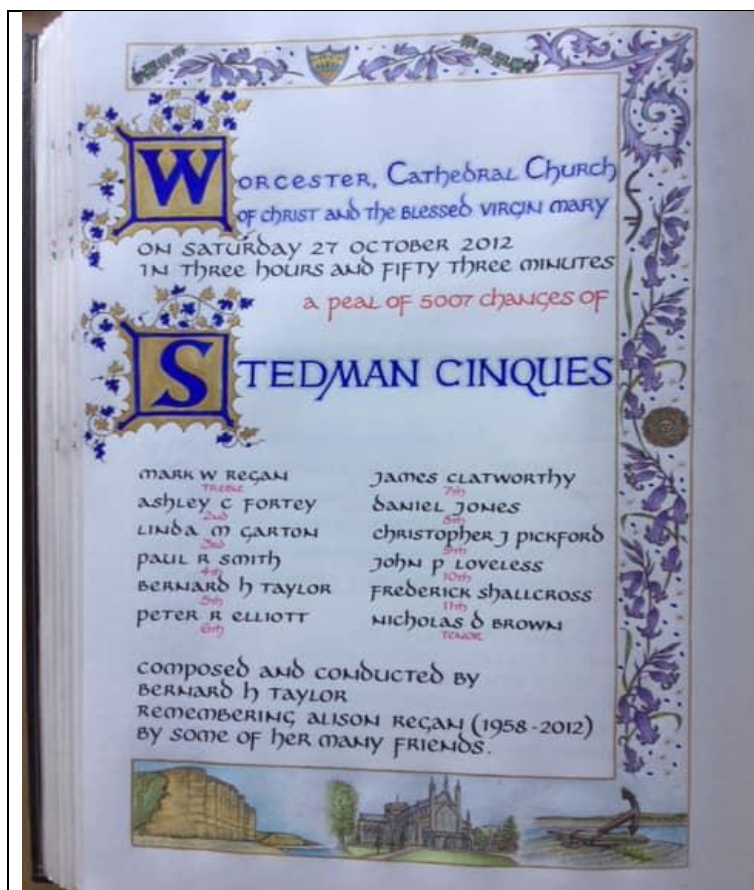 WORCESTER, CATHEDRAL CHURCH
OF CHRIST AND THE BLESSED VIRGIN MARY
ON SATURDAY 27 OCTOBER 2012
IN THREE HOURS AND FIFTY THREE MINUTES
A PEAL OF 5007 CHANGES OF
STEDMAN CINQUES
MARK W REGAN
TREBLE
ASHLEY C FORTEY
2nd
LINDA M GARTON
3rd
PAUL R SMITH
4th
BERNARD H TAYLOR
5th
PETER R ELLIOTT
6th
JAMES CLATWORTHY
7th
DANIEL JONES
8th
CHRISTOPHER J PICKFORD
9th
JOHN P LOVELESS
10th
FREDERICK SHALLCROSS
11th
NICHOLAS D BROWN
TENOR
COMPOSED AND CONDUCTED BY
BERNARD H TAYLOR
REMEMBERING ALISON REGAN (1958-2012)
BY SOME OF HER MANY FRIENDS.